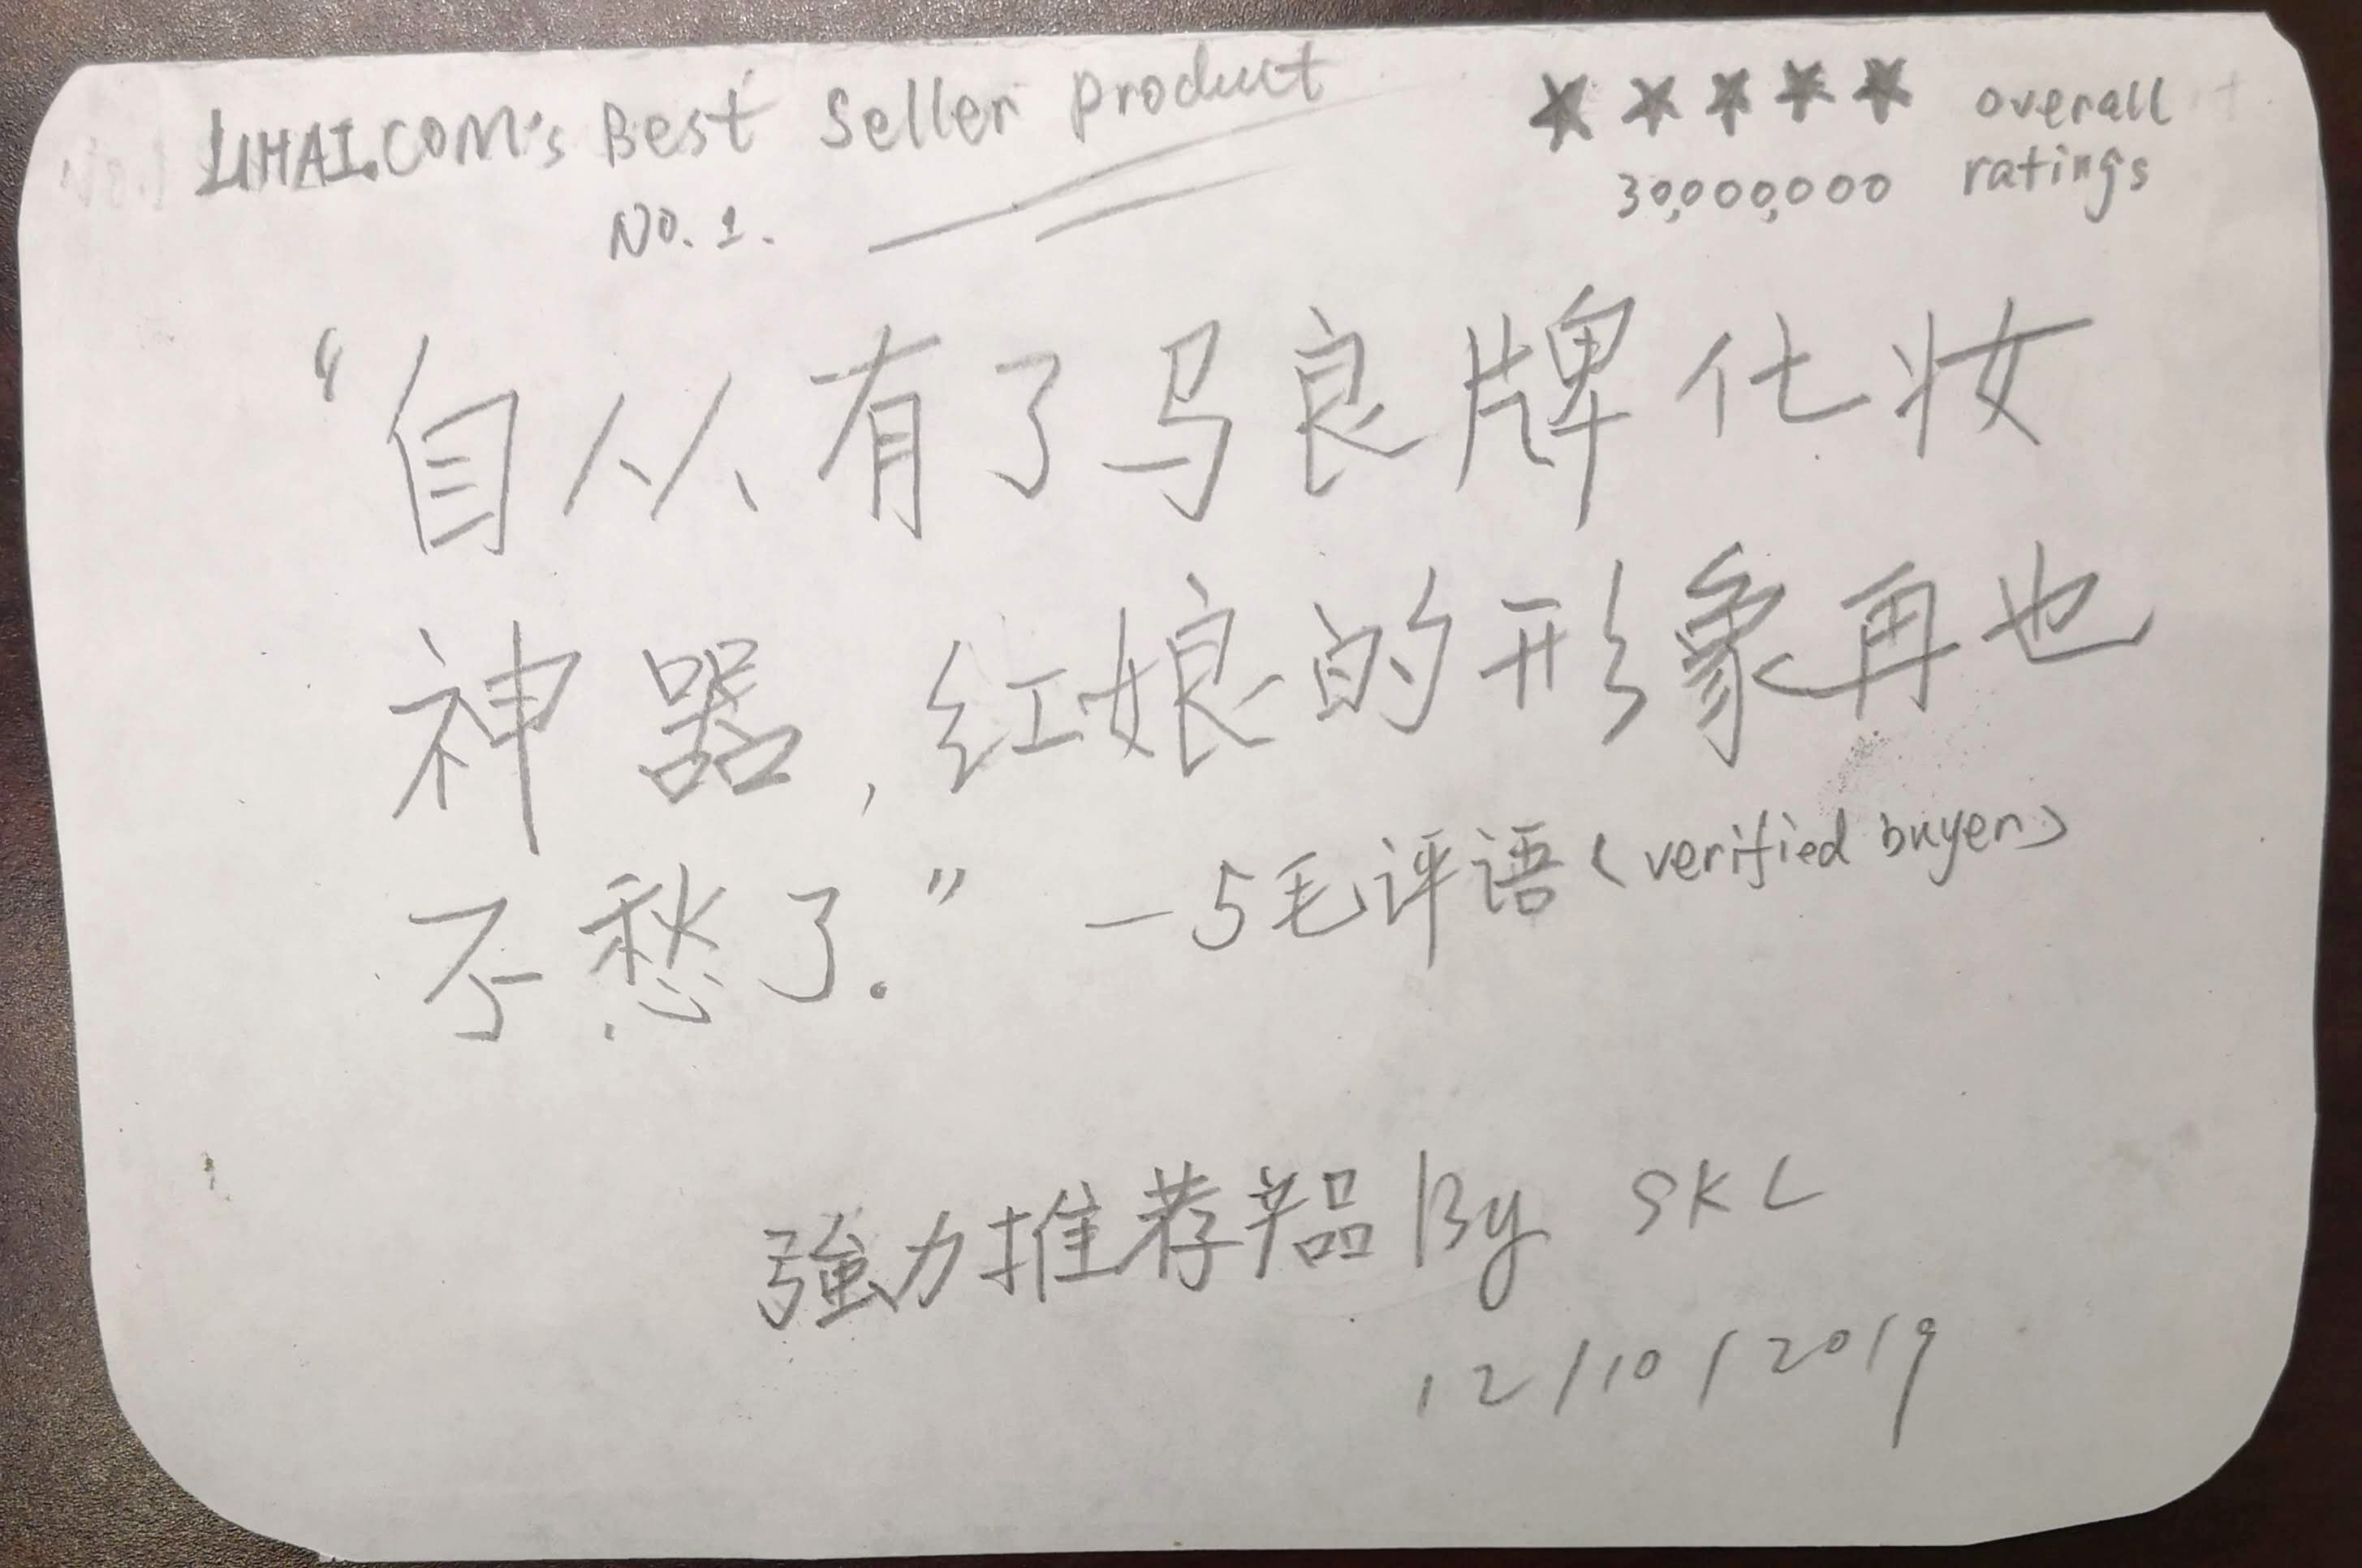 LIHAI.COM's Best Seller Product
No. 1.
★★★★★ overall
30,000,000 ratings
“自从有了马良牌化妆
神器,红娘的形象再也
不愁了.” —5毛评语(verified buyer)
強力推荐产品 By SKL
12/10/2019